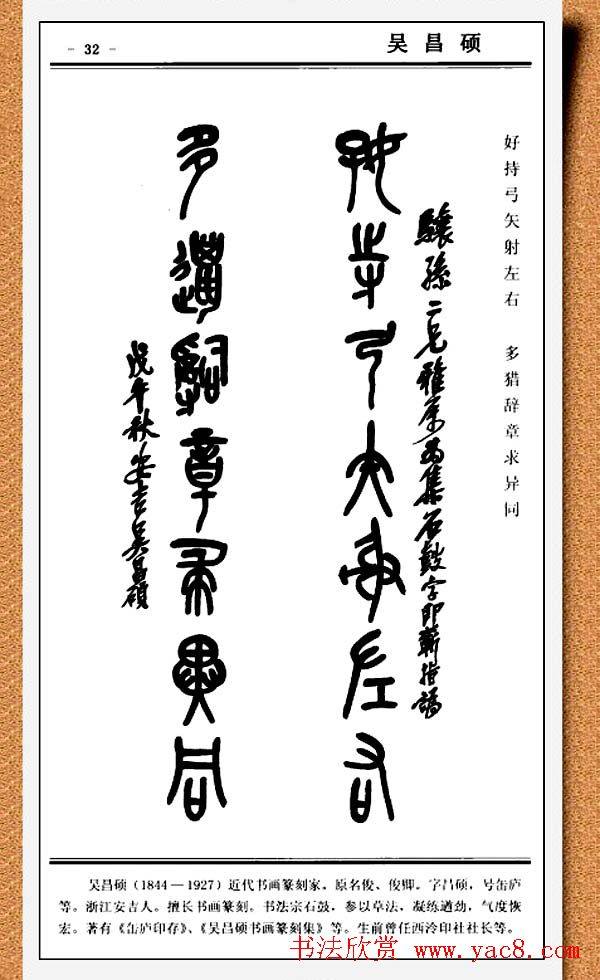 - 32 -
吴昌硕
好持弓矢射左右 多猎辞章求异同
驤孫二兄雅属為集石鼓字即蘄指謬
好寺弓矢射左右
多邋辭章求異同
戊午秋安吉吴昌碩
吴昌硕（1844—1927）近代书画篆刻家。原名俊、俊卿。字昌硕，号缶庐
等。浙江安吉人。擅长书画篆刻。书法宗石鼓，参以草法，凝练遒劲，气度恢
宏。著有《缶庐印存》、《吴昌硕书画篆刻集》等。生前曾任西泠印社社长等。
书法欣赏 www.yac8.com